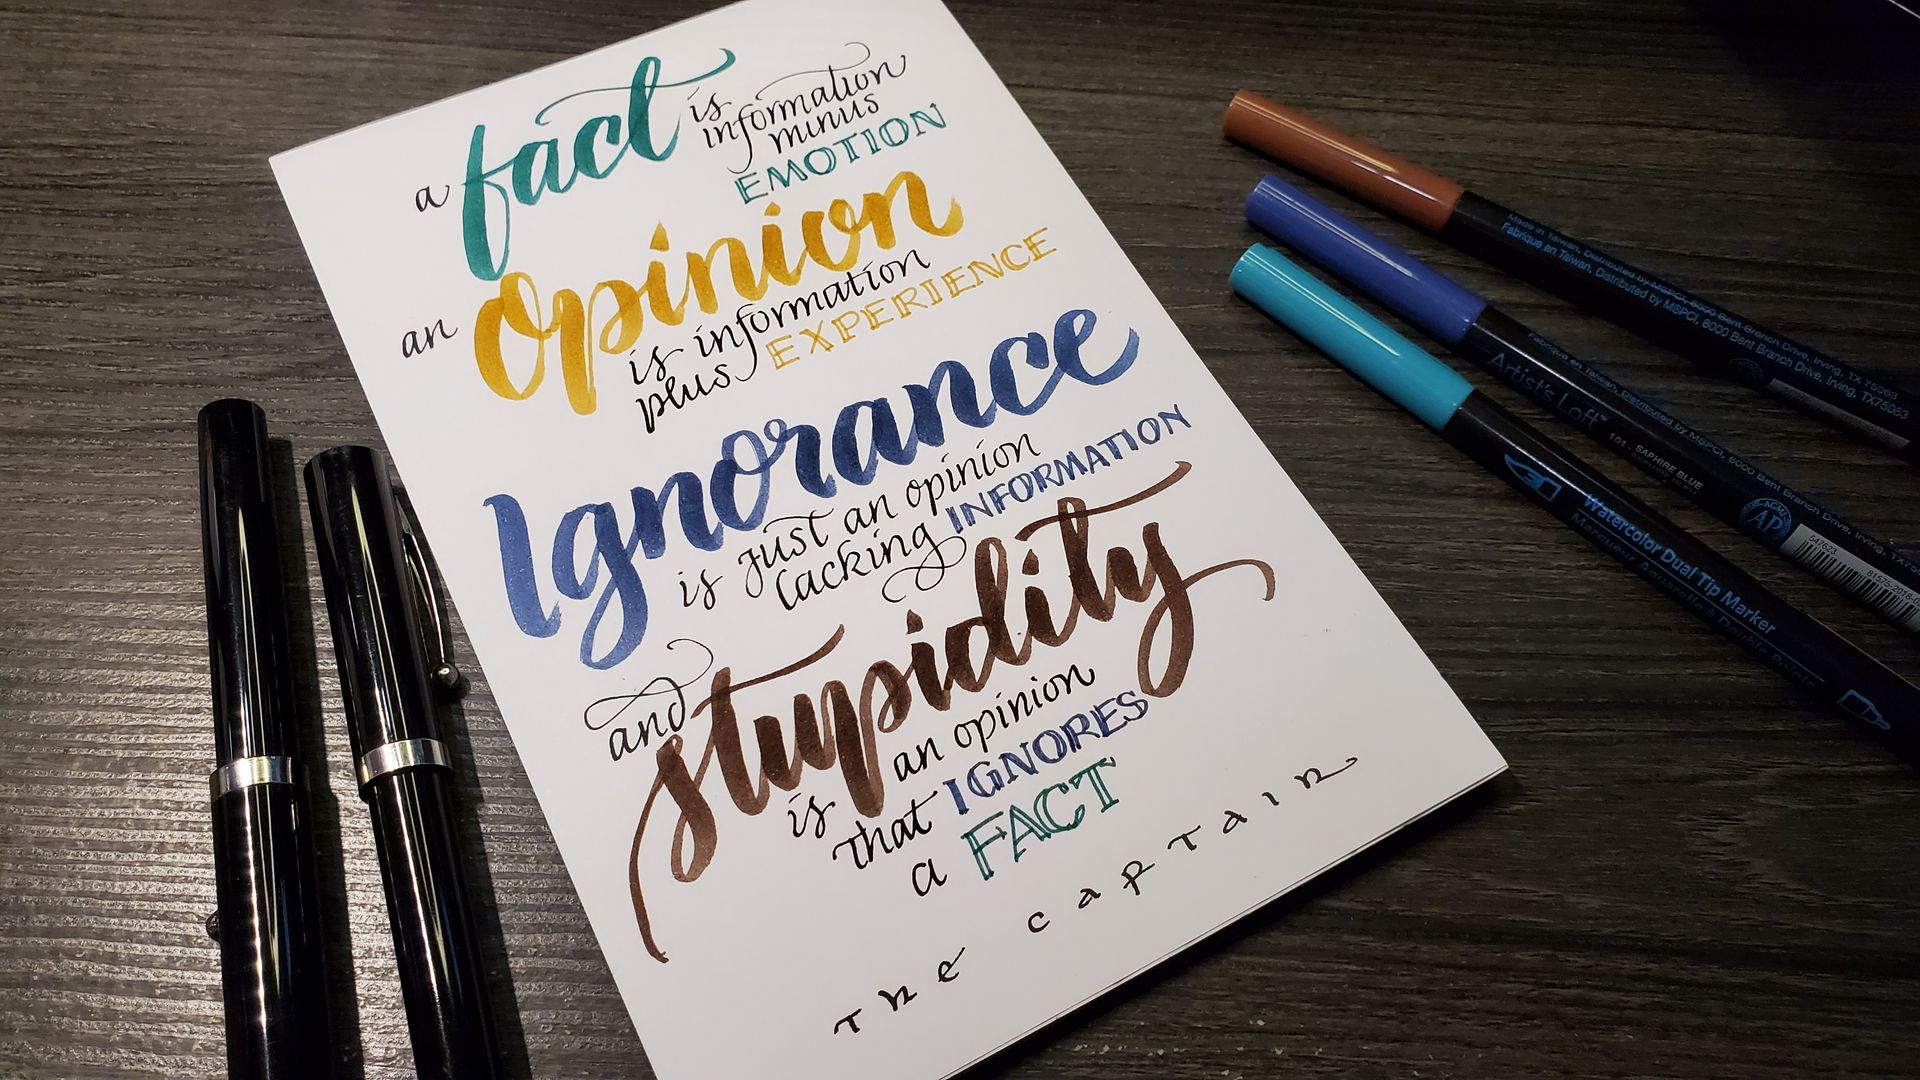 a fact is
information
minus
EMOTION
an Opinion
is information
plus EXPERIENCE
Ignorance
is just an opinion
lacking INFORMATION
and stupidity
is an opinion
that IGNORES
a FACT
THE CAPTAIN
Made in Taiwan, Distributed by MSPCI, 8000 Bent Branch Drive, Irving, TX 75063
Fabriqué en Taiwan, Distributed by MSPCI, 8000 Bent Branch Drive, Irving, TX75063
Fabriqué en Taiwan, Distributed by MSPCI, 8000 Bent Branch Drive, Irving,
Artist's Loft™
101 - SAPHIRE BLUE
AP
547623
Watercolor Dual Tip Marker
Marqueur Aquarelle à Double Pointe